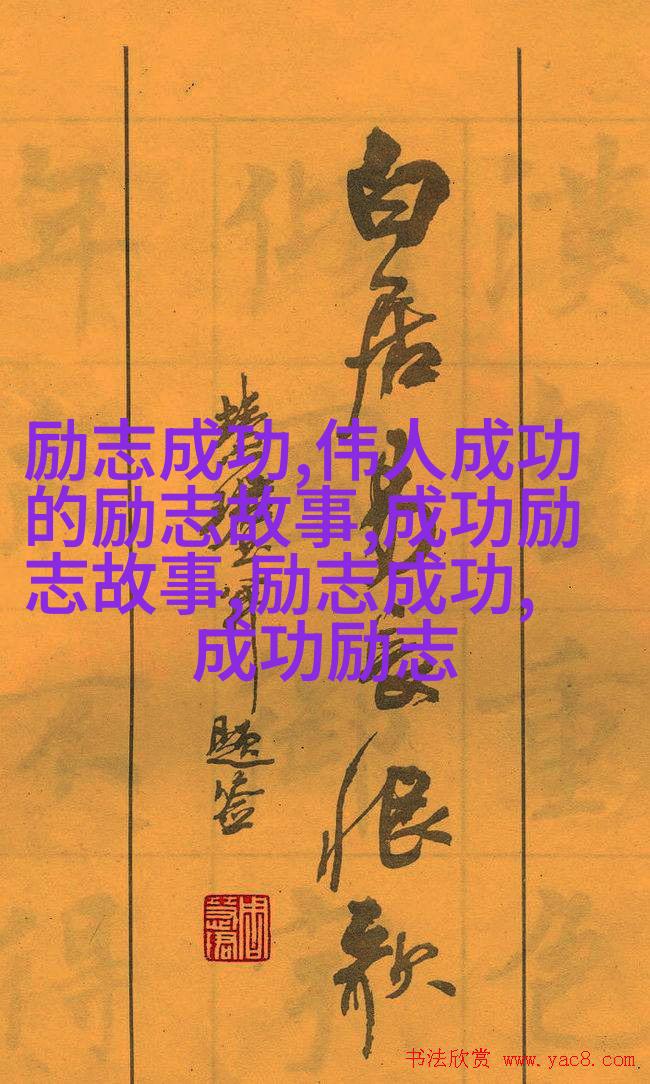 白居易長恨歌
题签
励志成功,伟人成功
的励志故事,成功励
志故事,励志成功,
成功励志
书法欣赏 www.yac8.com